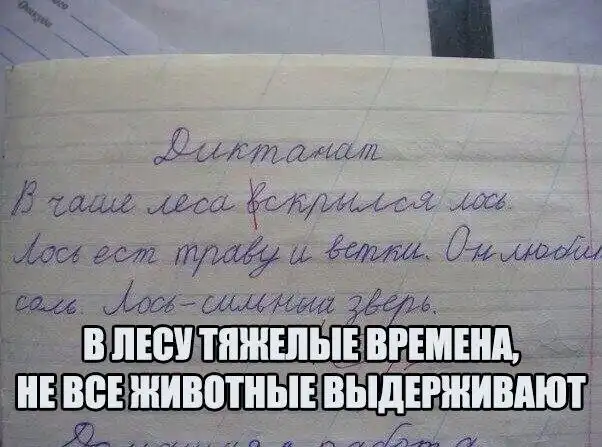 Диктанат
В чаше леса вскрылся лось.
Лось ест траву и ветки. Он любит
соль. Лось - сильный зверь.
В ЛЕСУ ТЯЖЕЛЫЕ ВРЕМЕНА,
НЕ ВСЕ ЖИВОТНЫЕ ВЫДЕРЖИВАЮТ
Домашняя работа